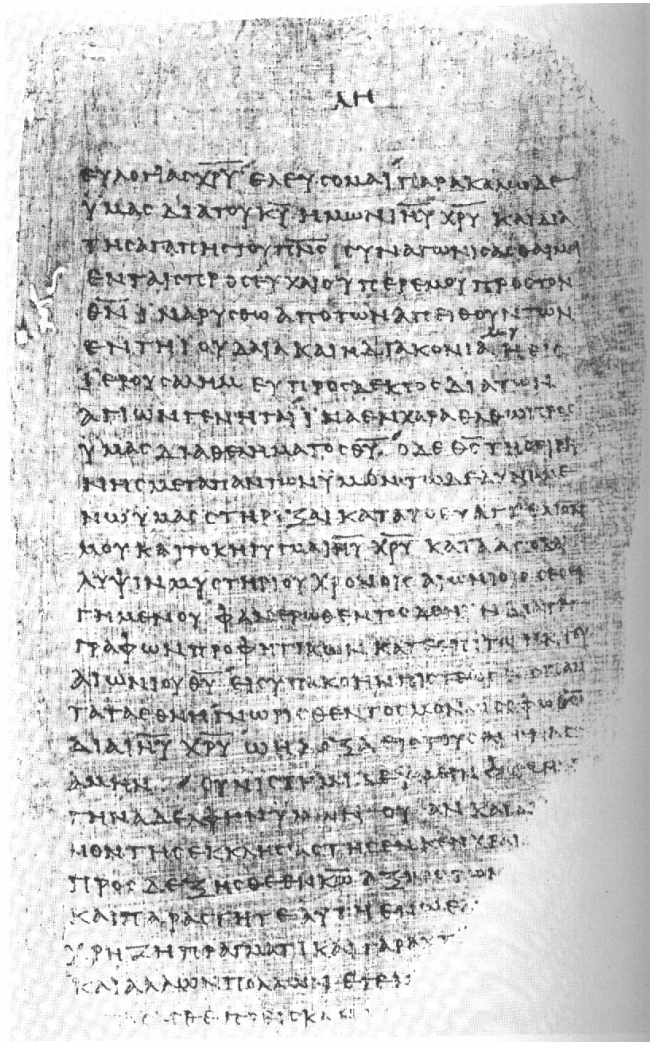 ΛΗ
ΕΥΛΟΓΙΑϹ Χ̅Ρ̅Υ̅ ΕΛΕΥϹΟΜΑΙ ΠΑΡΑΚΑΛΩ ΔΕ
ΥΜΑϹ ΔΙΑ ΤΟΥ Κ̅Υ̅ ΗΜΩΝ Ι̅Η̅Υ̅ Χ̅Ρ̅Υ̅ ΚΑΙ ΔΙΑ
ΤΗϹ ΑΓΑΠΗϹ ΤΟΥ Π̅Ν̅Ϲ̅ ϹΥΝΑΓΩΝΙϹΑϹΘΑΙ ΜΟΙ
ΕΝ ΤΑΙϹ ΠΡΟϹΕΥΧΑΙϹ ΥΠΕΡ ΕΜΟΥ ΠΡΟϹ ΤΟΝ
Θ̅Ν̅ ΙΝΑ ΡΥϹΘΩ ΑΠΟ ΤΩΝ ΑΠΕΙΘΟΥΝΤΩΝ
ΕΝ ΤΗ ΙΟΥΔΑΙΑ ΚΑΙ Η ΔΙΑΚΟΝΙΑ ΜΟΥ Η ΕΙϹ
ΙΕΡΟΥϹΑΛΗΜ ΕΥΠΡΟϹΔΕΚΤΟϹ ΔΙΑ ΤΩΝ
ΑΓΙΩΝ ΓΕΝΗΤΑΙ ΙΝΑ ΕΝ ΧΑΡΑ ΕΛΘΩ ΠΡΟϹ
ΥΜΑϹ ΔΙΑ ΘΕΛΗΜΑΤΟϹ Θ̅Υ̅ Ο ΔΕ Θ̅Ϲ̅ ΤΗϹ ΕΙΡΗ
ΝΗϹ ΜΕΤΑ ΠΑΝΤΩΝ ΥΜΩΝ ΤΩ ΔΕ ΔΥΝΑΜΕ
ΝΩ ΥΜΑϹ ϹΤΗΡΙΞΑΙ ΚΑΤΑ ΤΟ ΕΥΑΓΓΕΛΙΟΝ
ΜΟΥ ΚΑΙ ΤΟ ΚΗΡΥΓΜΑ Ι̅Η̅Υ̅ Χ̅Ρ̅Υ̅ ΚΑΤΑ ΑΠΟΚΑ
ΛΥΨΙΝ ΜΥϹΤΗΡΙΟΥ ΧΡΟΝΟΙϹ ΑΙΩΝΙΟΙϹ ϹΕϹΕΙ
ΓΗΜΕΝΟΥ ΦΑΝΕΡΩΘΕΝΤΟϹ ΔΕ ΝΥΝ ΔΙΑ ΤΕ
ΓΡΑΦΩΝ ΠΡΟΦΗΤΙΚΩΝ ΚΑΤ ΕΠΙΤΑΓΗΝ ΤΟΥ
ΑΙΩΝΙΟΥ Θ̅Υ̅ ΕΙϹ ΥΠΑΚΟΗΝ ΠΙϹΤΕΩϹ ΕΙϹ ΠΑΝ
ΤΑ ΤΑ ΕΘΝΗ ΓΝΩΡΙϹΘΕΝΤΟϹ ΜΟΝΩ ϹΟΦΩ Θ̅Ω̅
ΔΙΑ Ι̅Η̅Υ̅ Χ̅Ρ̅Υ̅ Ω Η ΔΟΞΑ ΕΙϹ ΤΟΥϹ ΑΙΩΝΑϹ
ΑΜΗΝ ϹΥΝΙϹΤΗΜΙ ΔΕ
ΤΗΝ ΑΔΕΛΦΗΝ ΥΜΩΝ ΟΥϹΑΝ ΚΑΙ
ΝΟΝ ΤΗϹ ΕΚΚΛΗϹΙΑϹ ΤΗϹ ΕΝ ΚΕΝΧΡΕΑΙ
ΠΡΟϹΔΕΞΗϹΘΕ ΕΝ Κ̅Ω̅ ΑΞΙΩϹ ΤΩΝ
ΚΑΙ ΠΑΡΑϹΤΗΤΕ ΑΥΤΗ ΕΝ Ω
ΧΡΗΖΗ ΠΡΑΓΜΑΤΙ ΚΑΙ ΓΑΡ ΑΥΤ
ΚΑΙ ΑΛΛΩΝ ΠΟΛΛΩΝ